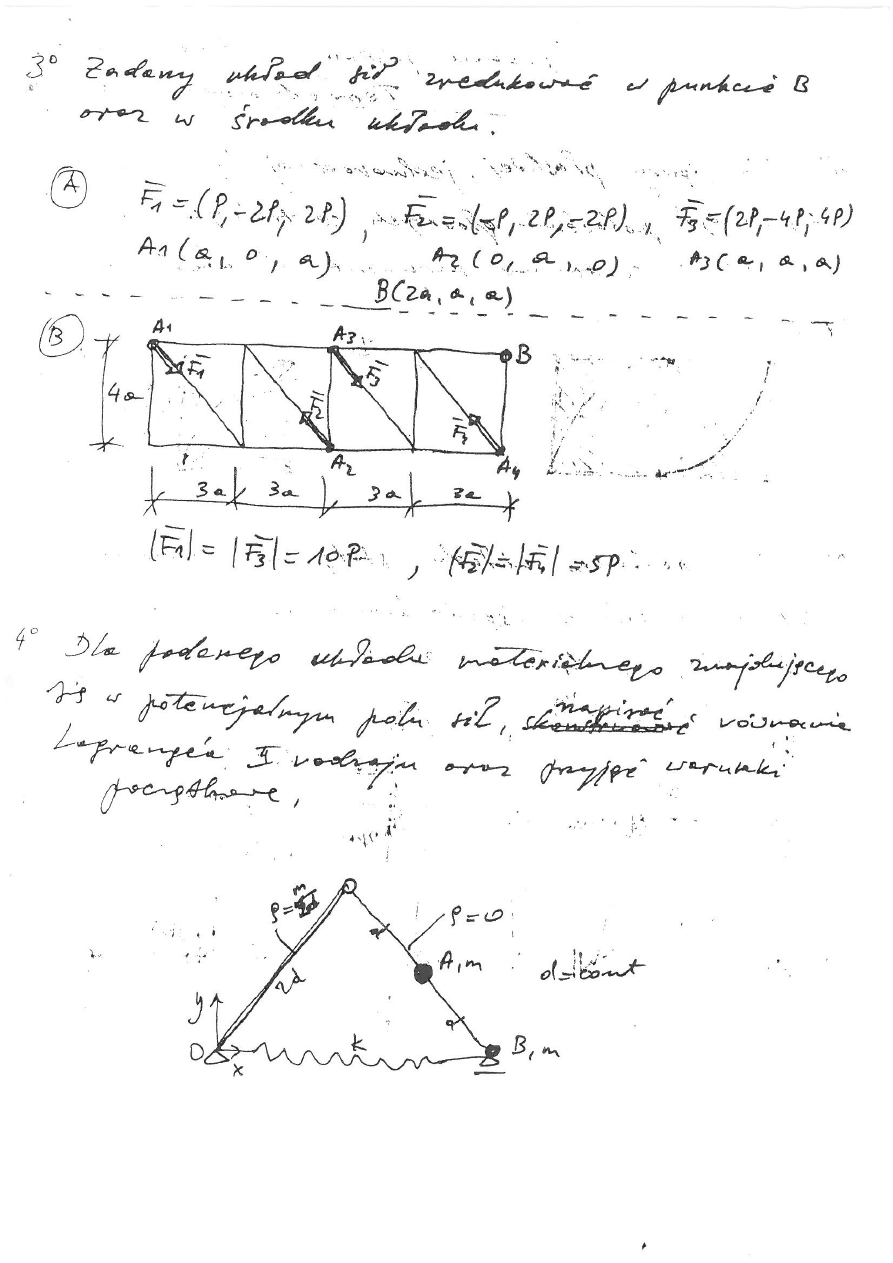 3° Zadany układ sił zredukować w punkcie B
oraz w środku układu.
A
F̅1 = (P, -2P, 2P) , F̅2 = (-P, 2P, -2P) , F̅3 = (2P, -4P, 4P)
A1 (a, 0, a) A2 (0, a, 0) A3 (a, a, a)
B(2a, a, a)
B
A1 A3 B
F̅1 F̅3
4a F̅2
A2 A4
3a 3a 3a 3a
|F̅1| = |F̅3| = 10P , |F̅2| = |F̅4| = 5P
4° Dla podanego układu materialnego znajdującego
się w potencjalnym polu sił, napisać równania
Lagrange'a II rodzaju oraz przyjąć warunki
początkowe,
ρ = m/2d ρ = 0
2d A, m d = const
y
O k B, m
x